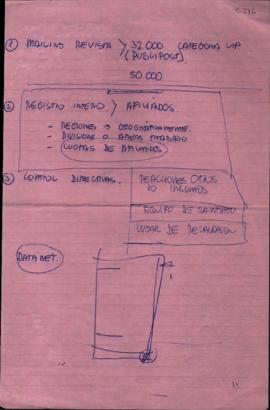 ① MAILING REVISTA > 32.000 CATEGORIA VIP
(PUBLIPOST)
50.000
② REGISTRO INTERNO > AFILIADOS
- REGIONES → GEOGRÁFICAMENTE.
- DIVISIONES O AREAS TRABAJO
- CUOTAS DE AFILIADOS
③ CONTROL DIRECTIVAS.
REACCIONES OTROS
NO INSCRITOS
EQUIPO DE
LOCAL DE RECAUDACION
DATA NET.